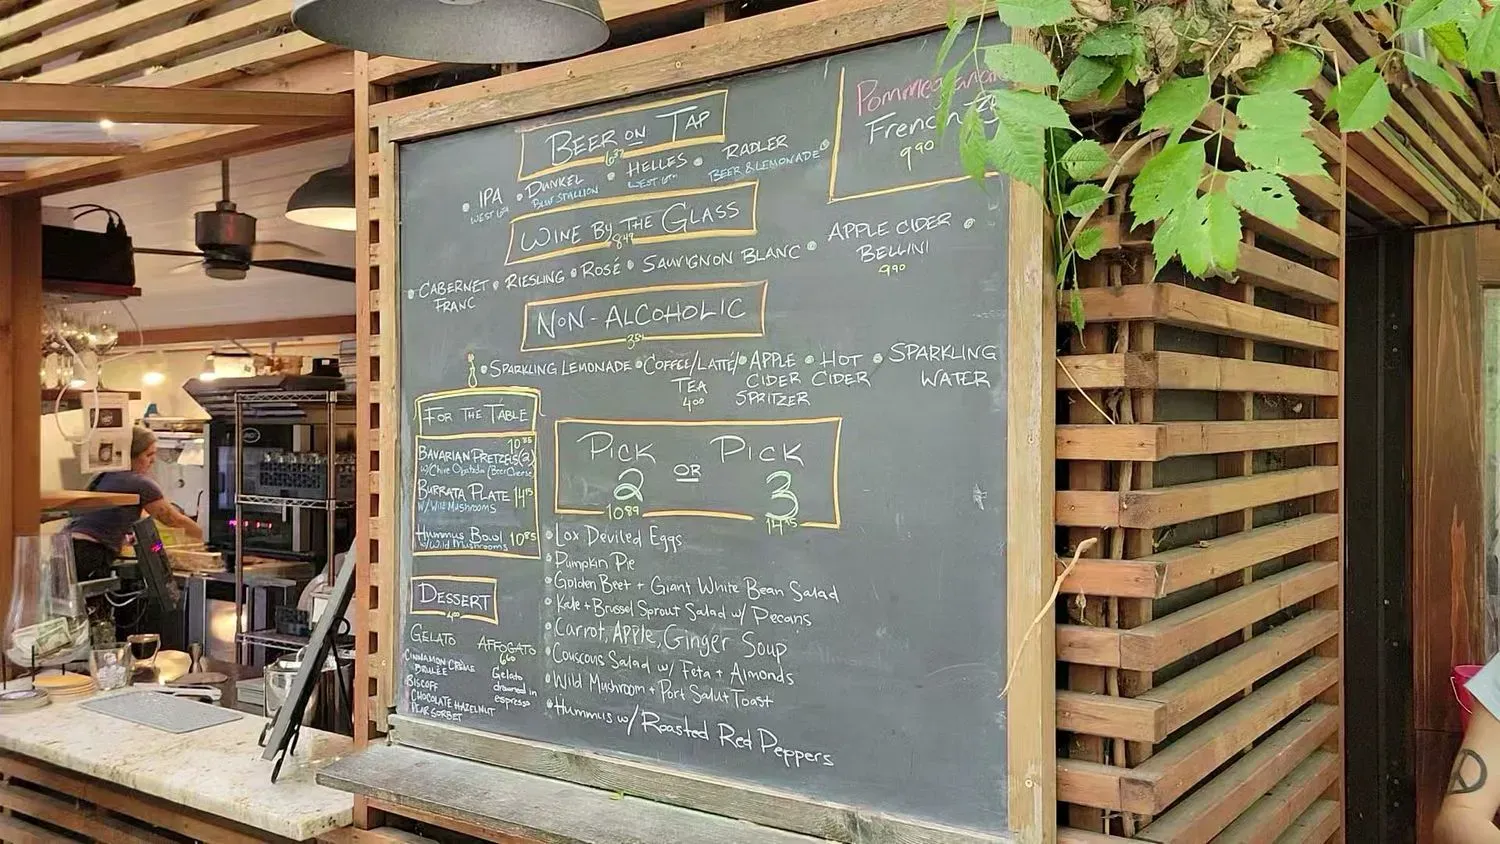 BEER ON TAP
6.87
• IPA • DUNKEL • HELLES • RADLER •
WEST 6TH BLUE STALLION WEST 6TH BEER & LEMONADE
Pommegranate
French 75
9.90
WINE BY THE GLASS
8.49
• CABERNET FRANC • RIESLING • ROSÉ • SAUVIGNON BLANC •
APPLE CIDER •
BELLINI
9.90
NON-ALCOHOLIC
• SPARKLING LEMONADE • COFFEE/LATTÉ/ • APPLE • HOT • SPARKLING
TEA CIDER CIDER WATER
4.00 SPRITZER
FOR THE TABLE
10.85
BAVARIAN PRETZELS (2)
w/Chive Obatzda (Beer Cheese)
BURRATA PLATE 14.15
W/ WILD MUSHROOMS
HUMMUS BOWL 10.85
w/ Wild MUSHROOMS
PICK 2 OR PICK 3
10.89 14.15
• Lox Deviled Eggs
• Pumpkin Pie
• Golden Beet + Giant White Bean Salad
• Kale + Brussel Sprout Salad w/ Pecans
• Carrot, Apple, Ginger Soup
• Couscous Salad w/ Feta + Almonds
• Wild Mushroom + Port Salut Toast
• Hummus w/ Roasted Red Peppers
DESSERT
GELATO
CINNAMON CRÈME
BRULEE
BISCOFF
CHOCOLATE HAZELNUT
PEAR SORBET
AFFOGATO
6.60
Gelato
drowned in
espresso